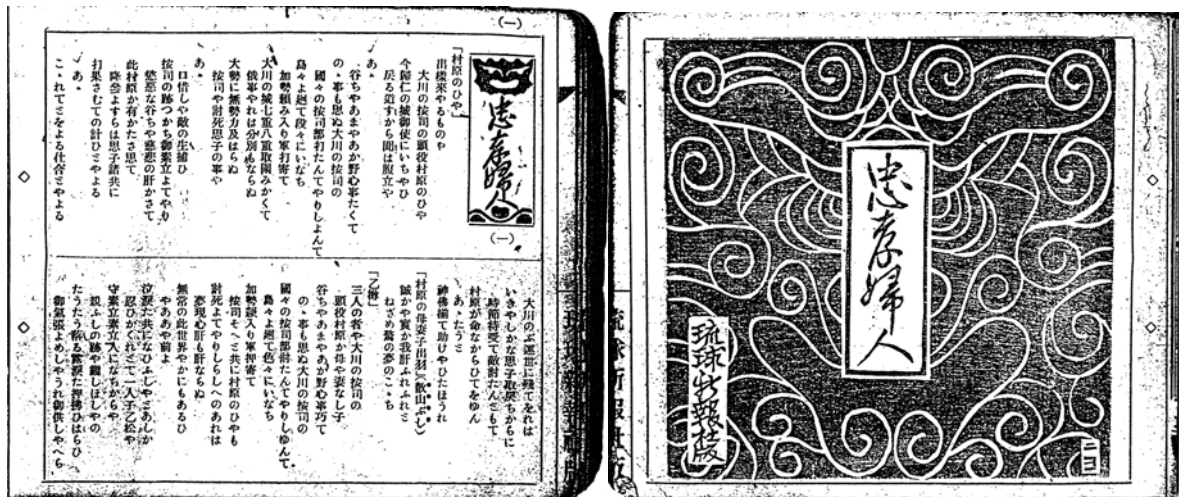 忠孝婦人
琉球新報版
（一）
忠孝婦人
（一）
「村原のひや」
出樣來やるものや
大川の按司の頭役村原のひや
今歸仁の城御使にいちやひ
戻る道すから聞は腹立や
あゝ
谷ちやあまやあか野心事たくて
のゝ事も思ぬ大川の按司の
國々の按司部打たんてやりしよんて
島々よ廻て段々にいなち
加勢賴み入り軍打寄て
大川の城七重八重取圍みかくて
俄事やれは分別ならぬ
大勢に無勢力及はらぬ
按司や討死思子の事や
あゝ
口惜しや敵の生捕ひ
按司の跡つかち御素立よてやり
慾惡な谷ちや慈悲の肝かさて
此村原か有かたさ思て
降參よすらは思子諸共に
打果さむての計ひさやよる
あゝ
こゝれてさをよる仕合さやよる
大川のぶ運世に殘てをれは
いきやしかな思子取戾ちからに
時節待受て敵討たんともて
村原が命ながらひてをゆん
あゝたうさ
神佛揃て助ひやひたほうれ
「村原の母妻子出羽（散山ぶし）
誠かや實か我肝ふれふれと
ねざめ驚の夢のこゝち
「乙樽」
三人の者や大川の按司の
頭役村原か母や妻なし子
谷ちやあまやあが野心事企て
のゝ事も思ぬ大川の按司の
國々の按司部討たんてやりしゆんて
島々よ廻て色々にいなち
加勢賴入り軍押寄て
按司そへさ共に村原のひやも
討死よてやりしらしへのあれは
夢現心肝も肝ならぬ
無常の此世界やかにもあるひ
やああや前よ
泣淚た共になひふしやさあしか
忍ひかくれさて一人子乙松や
守素立素立人になちからや
親ふしの跡や繼しほしやの
たうたう落る露淚た押拂ひはらひ
御氣張よめしやうれ御供しやへら